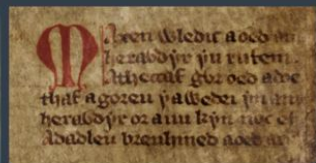 Maxen wledic aoed am
herawdyr yn ruuein.
Athecaf gwr oed adoe
thaf agoreu yawedei yn am
herawdyr or auu kyn noc ef
Adadleu brenhined aoed